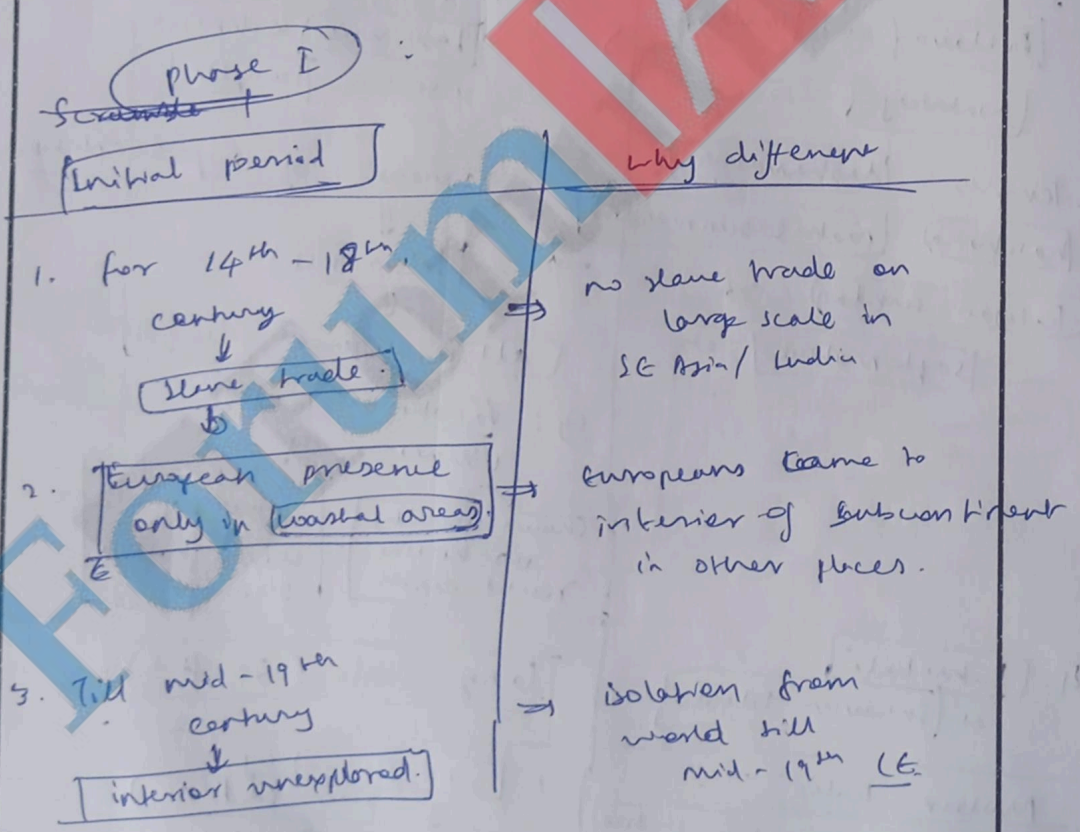 phase I
Initial period
why different
1. for 14th - 18th
century
↓
slave trade.
↓
⇒ no slave trade on
large scale in
SE Asia / India
2. European presence
only in coastal areas.
⇒ Europeans came to
interior of subcontinent
in other places.
3. Till mid - 19th
century
↓
interior unexplored.
→ isolation from
world till
mid - 19th CE
Forum IA